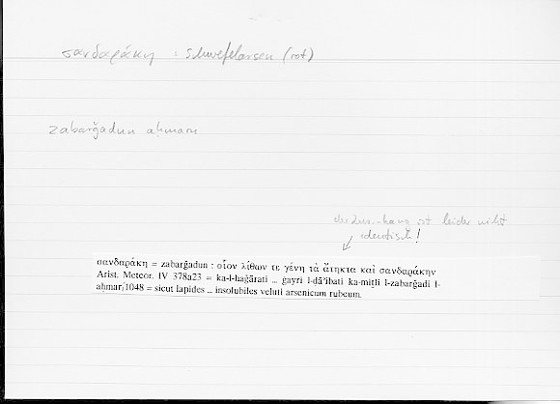 σανδαράκη : Schwefelarsen (rot)
zabarǧadun aḥmaru
der Zus.-hang ist leider nicht
identisch!
σανδαράκη = zabarǧadun : οἷον λίθων τε γένη τὰ ἄτηκτα καὶ σανδαράκην
Arist. Meteor. IV 378a23 = ka-l-ḥaǧārati ... ġayri l-ḏā’ibati ka-miṯli l-zabarǧadi l-
aḥmar/1048 = sicut lapides ... insolubiles veluti arsenicum rubeum.